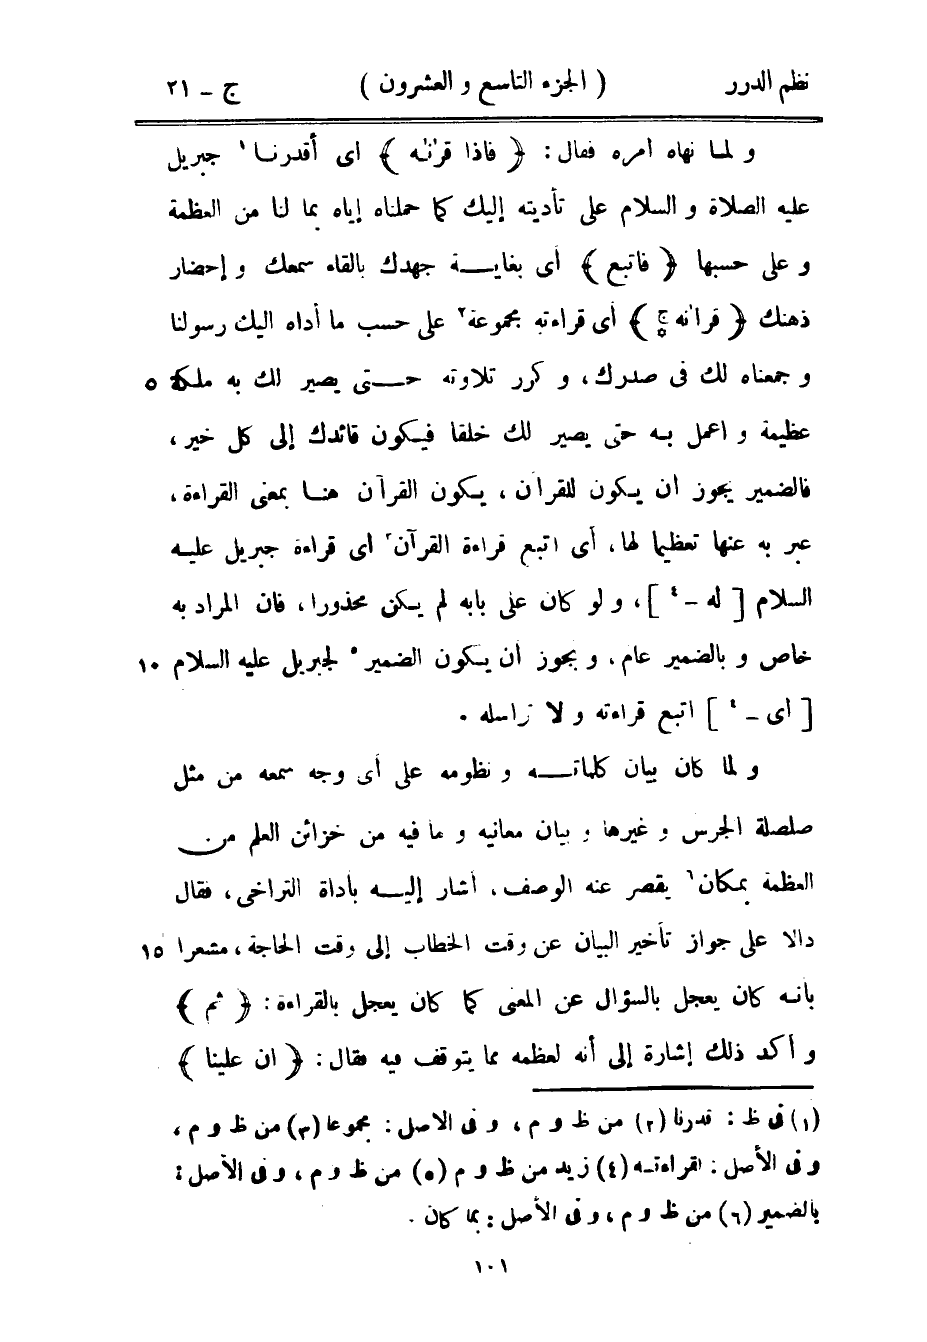 نظم الدرر ( الجزء التاسع و العشرون ) ج - ٢١
و لما نهاه أمره فقال: ﴿ فاذا قرأنٰه ﴾ اى أقدرنا١ جبريل
عليه الصلاة و السلام على تأديته إليك كما حملناه إياه بما لنا من العظمة
و على حسبها ﴿ فاتبع ﴾ أى بغاية جهدك بالقاء سمعك و إحضار
ذهنك ﴿ قرانه ج ﴾ أى قراءته مجموعة٢ على حسب ما أداه اليك رسولنا
و جمعناه لك فى صدرك، و كرر تلاوته حتى يصير لك به ملكة ٥
عظيمة و اعمل به حتى يصير لك خلقا فيكون قائدك إلى كل خير،
فالضمير يجوز أن يكون للقرآن، يكون القرآن هنا بمعنى القراءة،
عبر به عنها تعظيما لها، أى اتبع قراءة القرآن٣ أى قراءة جبريل عليه
السلام [ له - ٤ ]، و لو كان على بابه لم يكن محذورا، فان المراد به
خاص و بالضمير عام، و يجوز أن يكون الضمير٥ لجبريل عليه السلام ١٠
[ أى - ٤ ] اتبع قراءته و لا تراسله .
و لما كان بيان كلماته و نظومه على أى وجه سمعه من مثل
صلصلة الجرس و غيرها و بيان معانيه و ما فيه من خزائن العلم من
العظمة بمكان٦ يقصر عنه الوصف، أشار إليه بأداة التراخى، فقال
دالا على جواز تأخير البيان عن وقت الخطاب إلى وقت الحاجة، مشعرا ١٥
بأنه كان يعجل بالسؤال عن المعنى كما كان يعجل بالقراءة: ﴿ ثم ﴾
و أكد ذلك إشارة إلى أنه لعظمه مما يتوقف فيه فقال: ﴿ ان علينا ﴾
(١) فى ظ : قدرنا (٢) من ظ و م ، و فى الاصل : مجموعا (٣) من ظ و م ،
و فى الأصل : لقراءته (٤) زيد من ظ و م (٥) من ظ و م ، و فى الأصل :
بالضمير (٦) من ظ و م ، و فى الأصل : بما كان .
١٠١